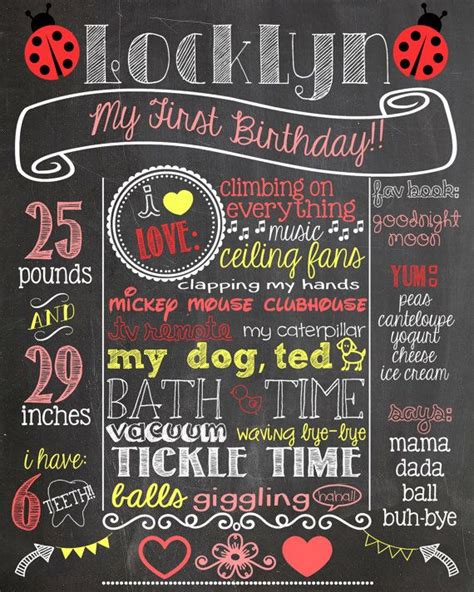 Locklyn
My First Birthday!!
25
pounds
AND
29
inches
i have:
6 TEETH!!
i
LOVE:
climbing on
everything
music
ceiling fans
clapping my hands
mickey mouse clubhouse
tv remote my caterpillar
my dog, ted
BATH TIME
vacuum waving bye-bye
TICKLE TIME
balls giggling haha!!
fav book:
goodnight
moon
YUM:
peas
canteloupe
yogurt
cheese
ice cream
says:
mama
dada
ball
buh-bye